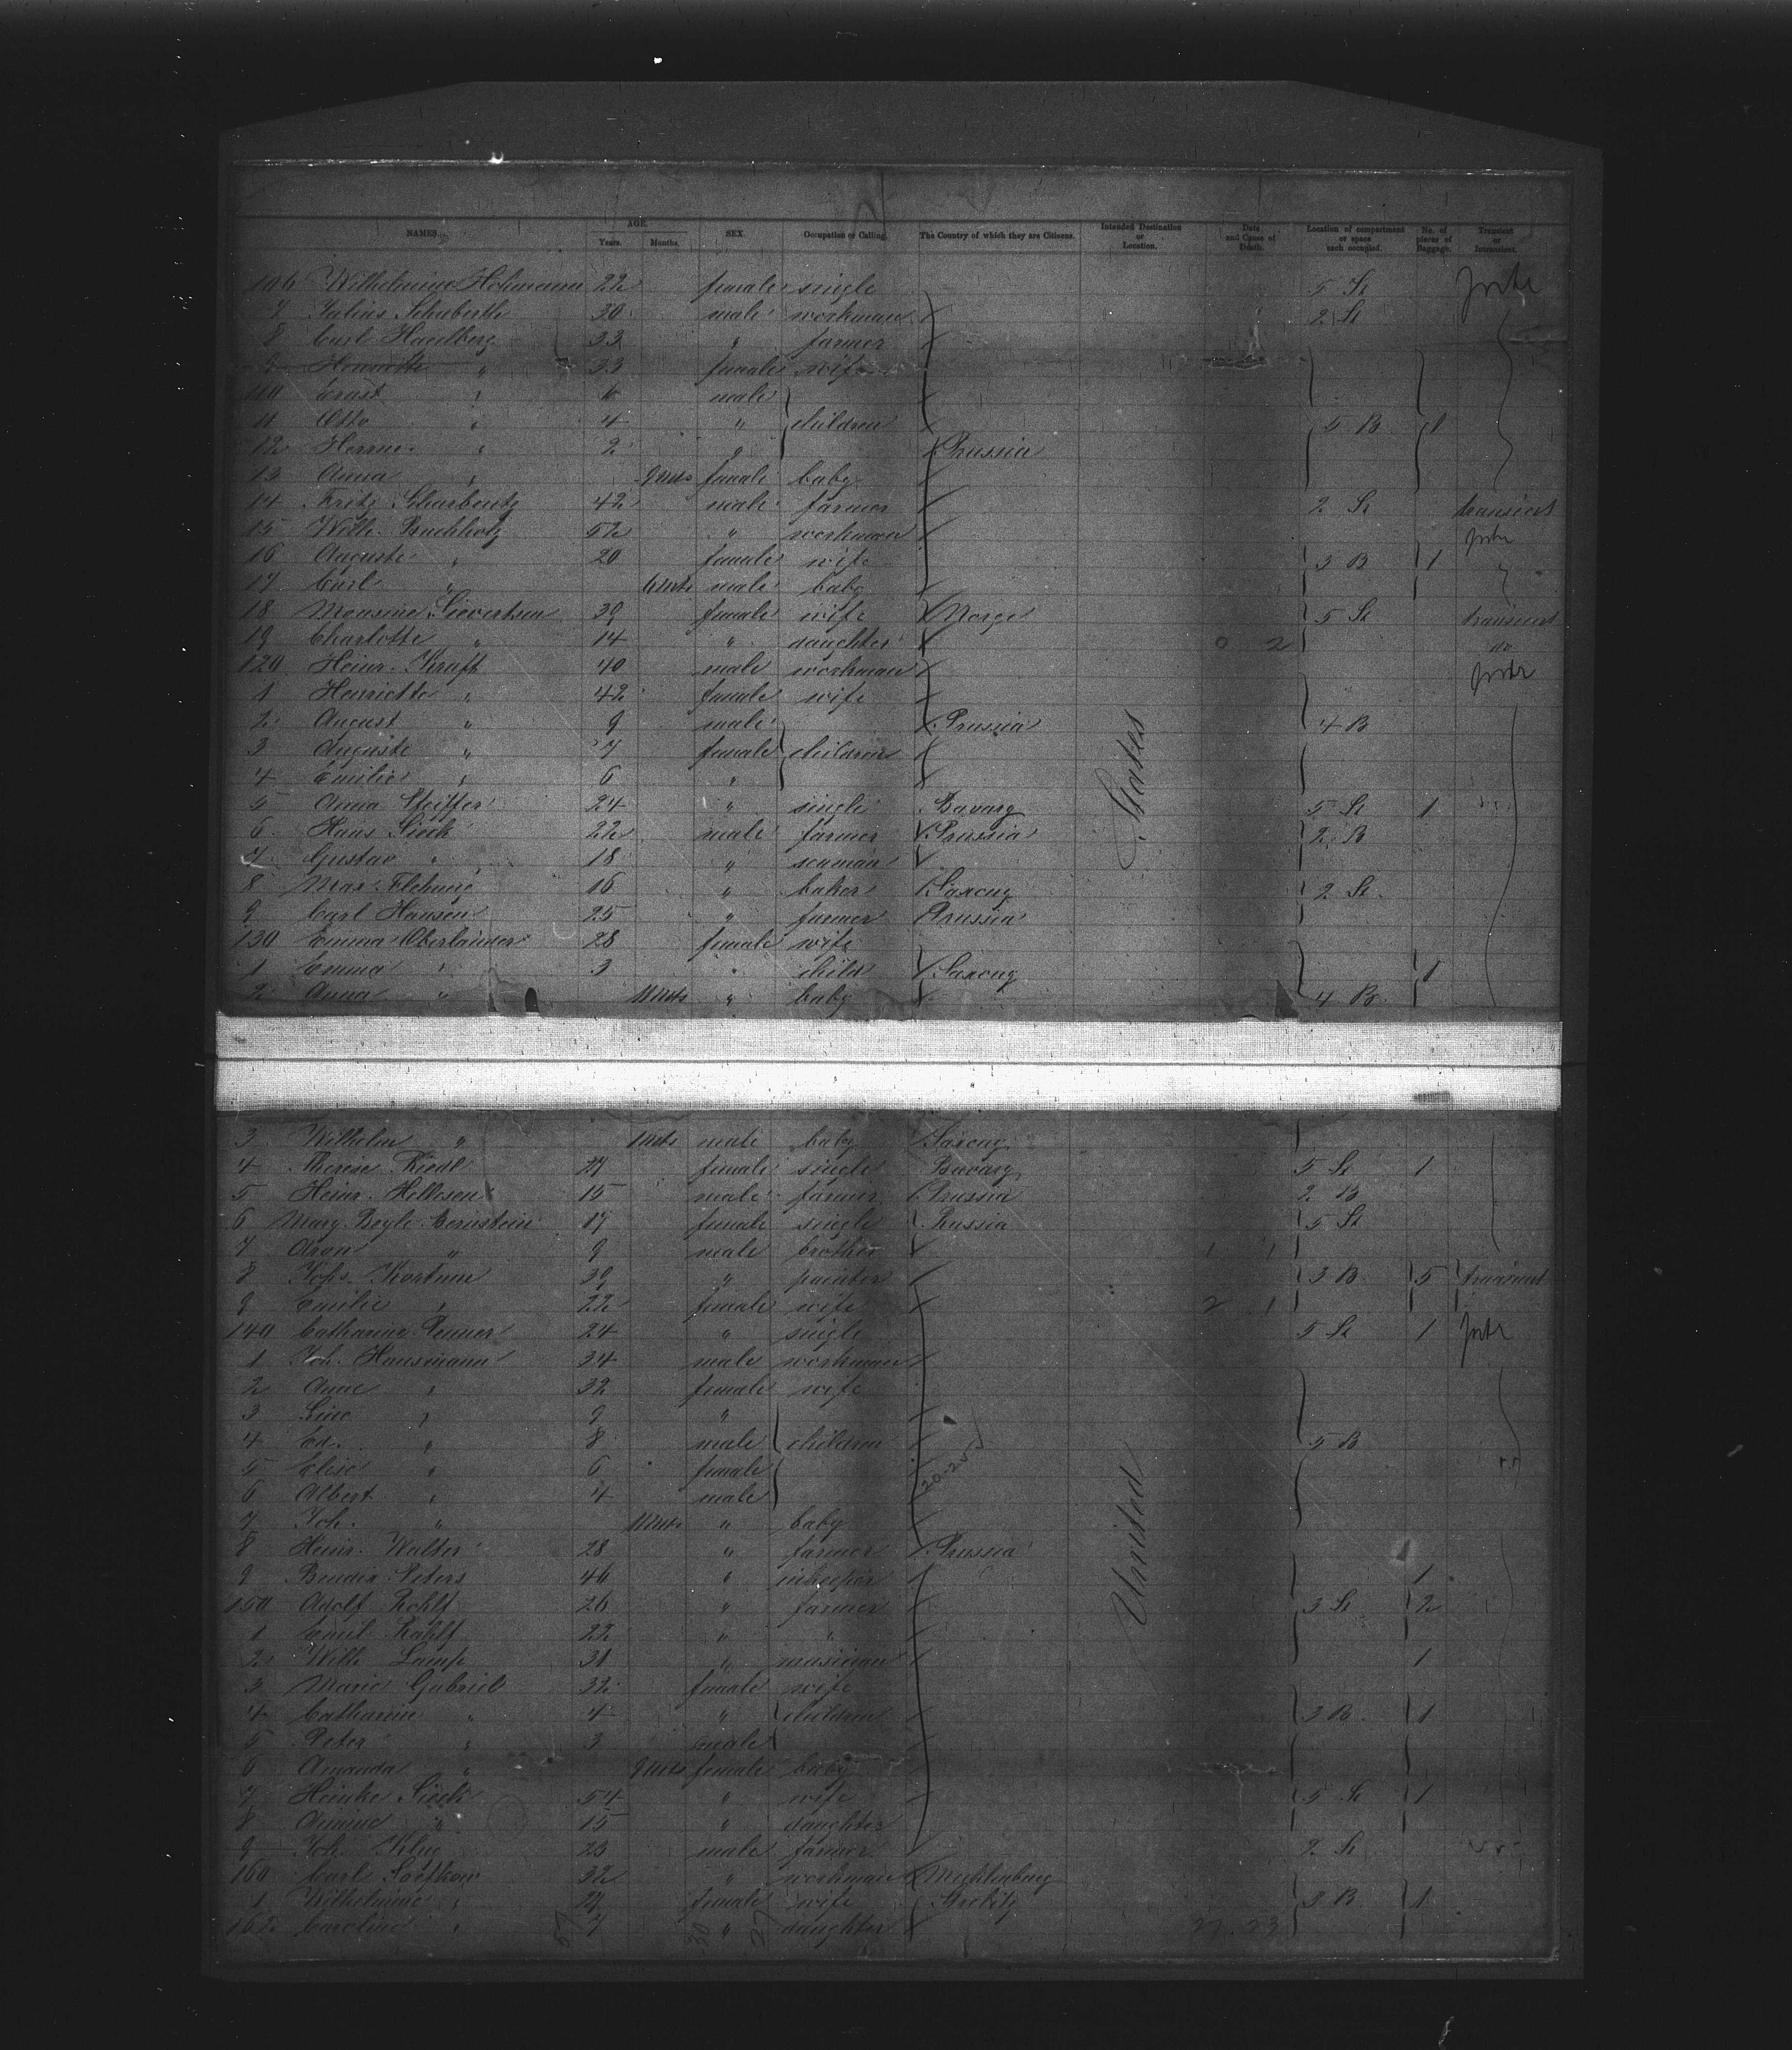 NAMES. AGE. Years. Months. SEX. Occupation or Calling. The Country of which they are Citizens. Intended Destination or Location. Date and Cause of Death. Location of compartment or space each occupied. No. of pieces of Baggage. Transient or Intransient.
106 Wilhelmine Hohmann 22 female single 5 St
7 Julius Schuberth 30 male workman 2 St
8 Carl Haselberg 33 " farmer
9 " 33 female wife
110 Ernst " 6 male
11 Otto " 4 " children 5 B 1
12 " 2 " Prussia
13 Anna " 9 mts female baby
14 Fritz 42 male farmer 2 St transient
15 Wilh. Buchholz 52 " workman
16 Auguste " 20 female wife 3 B 1
17 Carl " 6 mts male baby
18 Sievertsen 39 female wife Norge 5 St transient
19 Charlotte " 14 " daughter 0 2 do
120 Heinr. Kraft 40 male workman
1 Henriette " 42 female wife
2 August " 9 male Prussia 4 B
3 Auguste " 7 female children
4 Emilie " 6 "
5 Anna Pfeiffer 24 " single Bavarg 5 St 1
6 Hans Sieck 22 male farmer Prussia 2 B
7 Gustav " 18 " seaman
8 Max 16 " baker Saxony 2 St
9 Carl Hansen 25 " farmer Prussia
130 Emma Oberländer 28 female wife
1 Emma " 3 " child Saxony 1
2 Anna " 11 mts " baby 4 B
States
3 Wilhelm " 1 mts male baby Saxony
4 Therese Riedl 27 female single Bavarg 5 St 1
5 Heinr. 15 male farmer Prussia 2 B
6 Bernstein 17 female single Russia 5 St
7 Aron " 9 male brother 1 1
8 Johs. Kortum 39 " painter 3 B 5 transient
9 Emilie " 22 female wife 2 1
140 Catharine Penner 24 " single 5 St 1
1 Joh. Hausmann 34 male workman
2 Anne " 32 female wife
3 Line " 9 "
4 Ed. " 8 male children 5 B
5 Elise " 6 female
6 Albert " 4 male
7 Joh. " 11 mts " baby
8 Heinr. Walter 28 " farmer Prussia
9 Peters 46 " inkeeper 1
150 Adolf Rohlf 26 " farmer 3 St 2
1 Emil Rahlf 22 " "
2 Wilh Lampe 31 " musician 1
3 Marie Gabriel 32 female wife
4 Catharine " 4 " children 3 B 1
5 Peter " 3 male
6 Amanda " 9 mts female baby
7 Heinke Sieck 54 " wife 5 St 1
8 " 15 " daughter
9 Joh. Klug 23 male farmer 2 St
160 Carl 32 " workman Mecklenburg
1 Wilhelmine " 27 female wife Strelitz 3 B 1
162 Caroline " 7 " daughter 27 23
United